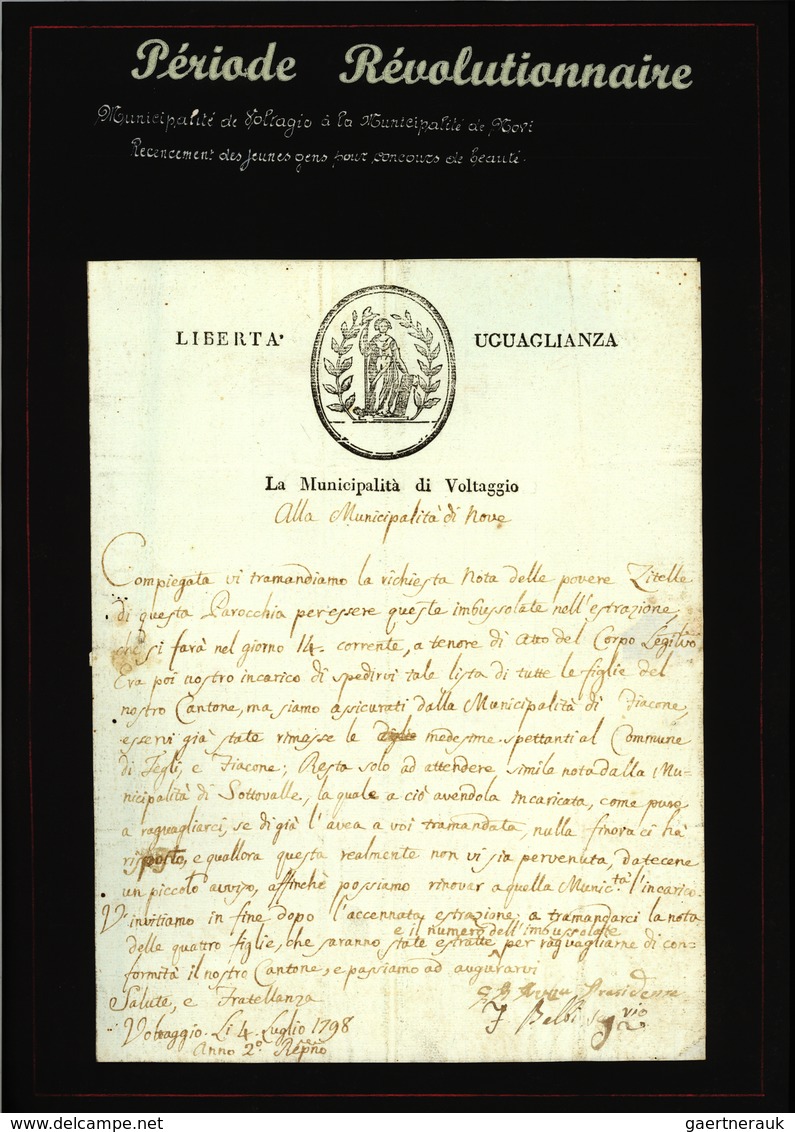 Période Révolutionnaire
Municipalité de Voltagio à la Municipalité de Novi
Recencement des jeunes gens pour concours de beauté.
LIBERTA' UGUAGLIANZA
La Municipalità di Voltaggio
Alla Municipalità di Nove
Compiegata vi tramandiamo la richiesta Nota delle povere Zitelle
di questa Parocchia per essere queste imbussolate nell'estrazione,
che si farà nel giorno 14. corrente, a tenore di Atto del Corpo Legilvo
Era poi nostro incarico di spedirvi tale lista di tutte le figlie del
nostro Cantone, ma siamo assicurati dalla Municipalità di Fiacone,
esservi già state rimesse le medesime spettanti al Commune
di Tegli, e Fiacone; Resta solo ad attendere simile nota dalla Mu-
nicipalità di Sottovalle, la quale a ciò avendola incaricata, come pure
a raguagliarci, se di già l'avea a voi tramandata, nulla finora ci hà
risposto, e quallora questa realmente non vi sia pervenuta, datecene
un piccolo avviso, affinchè possiamo rinovar a quella Munic.tà l'incarico.
V'invitiamo in fine dopo l'accennata estrazione, a tramandarci la nota
e il numero dell'imbussolate
delle quattro figlie, che saranno state estratte per raguagliarne di con=
formità il nostro Cantone, e passiamo ad augurarvi
Salute, e Fratellanza
Presidente
Voltaggio. Li 4. Luglio 1798
F Balbi
Anno 2.° Repño
gaertnerauk delcampe.net